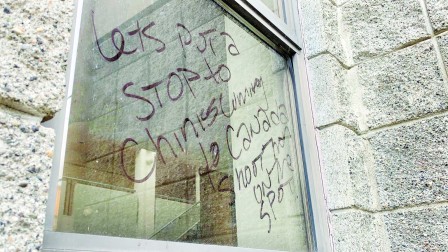 Lets put a
STOP to
Chines Coming
to Canada
Shoot
on the
spot